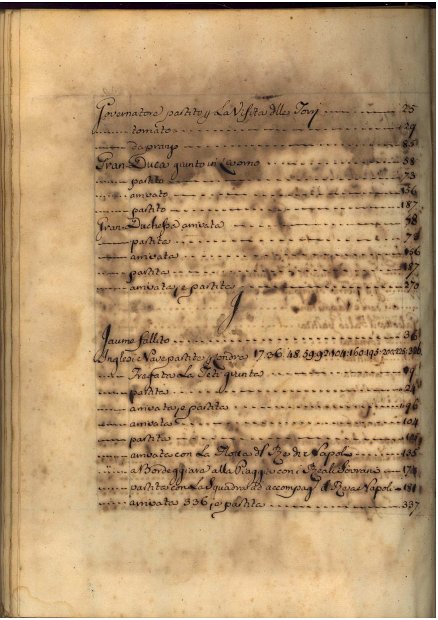 Governatore partito p La Visita dlle Torri 25
tornato 29
da pranzo 85
Gran Duca giunto in Livorno 38
partito 73
arrivato 136
partito 187
Gran Duchessa arrivata 48
partita 73
arrivata 136
partita 187
arrivata, e partita 270
J
Jaume fallito 36
Inglesi Nave partite p Londra 17. 36. 48. 59. 92. 104. 160. 195.
Fregata La Teti giunta
partita 24
arrivata, e partita
arrivata 104
partita
arrivata con La Flotta dl Re di Napoli 135
a Bordeggiare alla Piaggia con i Reali Sovrani 174
partita con La Squadra ad accompag. il Re di Napoli 181
arrivata 336, e partita 337